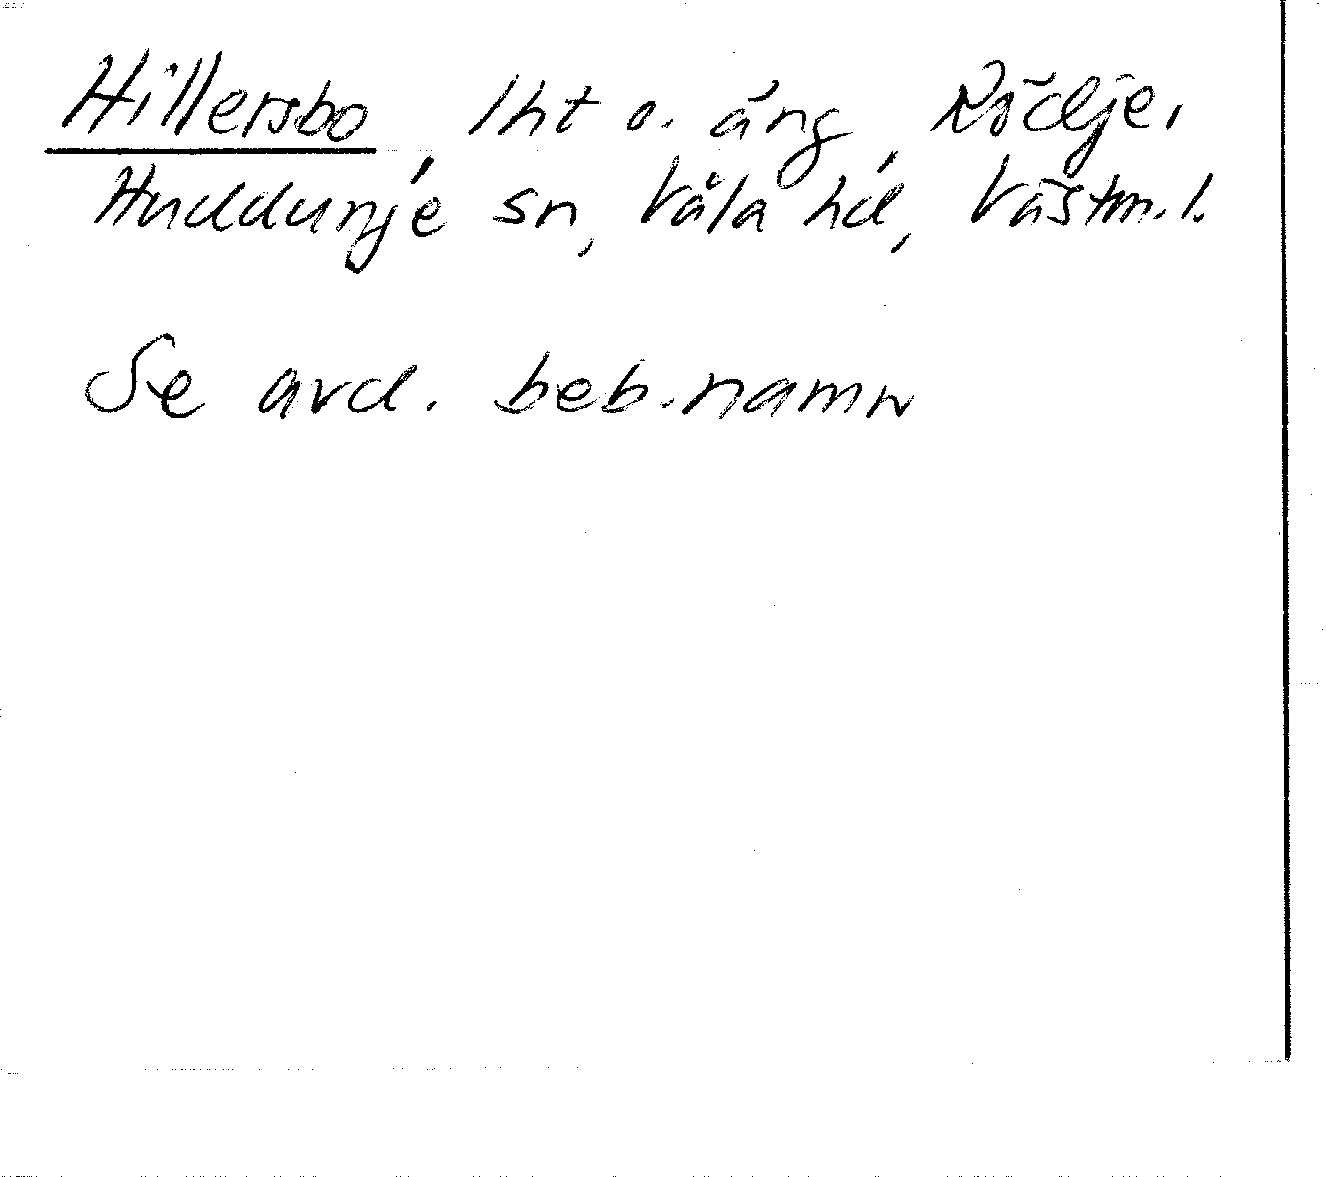 Hillersbo, lht o. äng, Röđlje,
Huddunge sn, Våla hd, Västm. l.
Se avd. beb.namn